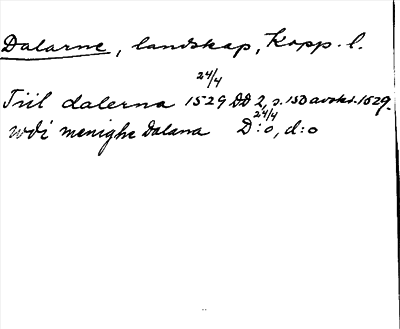 Dalarne, landskap, Kopp. l.
24/4
Tiil dalerna 1529 DD 2, s. 150 avskr. 1529.
24/4
wdi menighe Dalana D:o, d:o